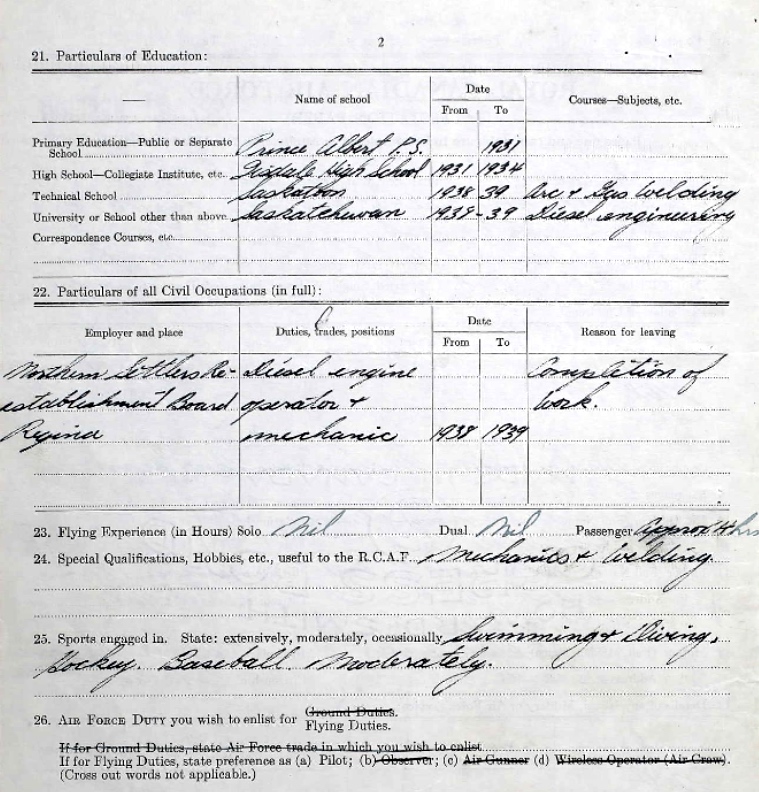 2
21. Particulars of Education:
Name of school Date Courses—Subjects, etc.
From To
Primary Education—Public or Separate
School Prince Albert P.S. 1931
High School—Collegiate Institute, etc. Tisdale High School 1931 1934
Technical School Saskatoon 1938 39 Arc + Gas Welding
University or School other than above Saskatchewan 1939-39 Diesel engineering
Correspondence Courses, etc.
22. Particulars of all Civil Occupations (in full):
Employer and place Duties, trades, positions Date Reason for leaving
From To
Northern Settlers Re- Diesel engine Completion of
establishment Board operator + work.
Regina mechanic 1938 1939
23. Flying Experience (in Hours) Solo Nil Dual Nil Passenger Approx 4 hrs
24. Special Qualifications, Hobbies, etc., useful to the R.C.A.F. Mechanics + Welding
25. Sports engaged in. State: extensively, moderately, occasionally Swimming + Diving,
Hockey. Baseball. Moderately.
26. AIR FORCE DUTY you wish to enlist for Ground Duties.
Flying Duties.
If for Ground Duties, state Air Force trade in which you wish to enlist
If for Flying Duties, state preference as (a) Pilot; (b) Observer; (c) Air Gunner (d) Wireless Operator (Air Crew).
(Cross out words not applicable.)